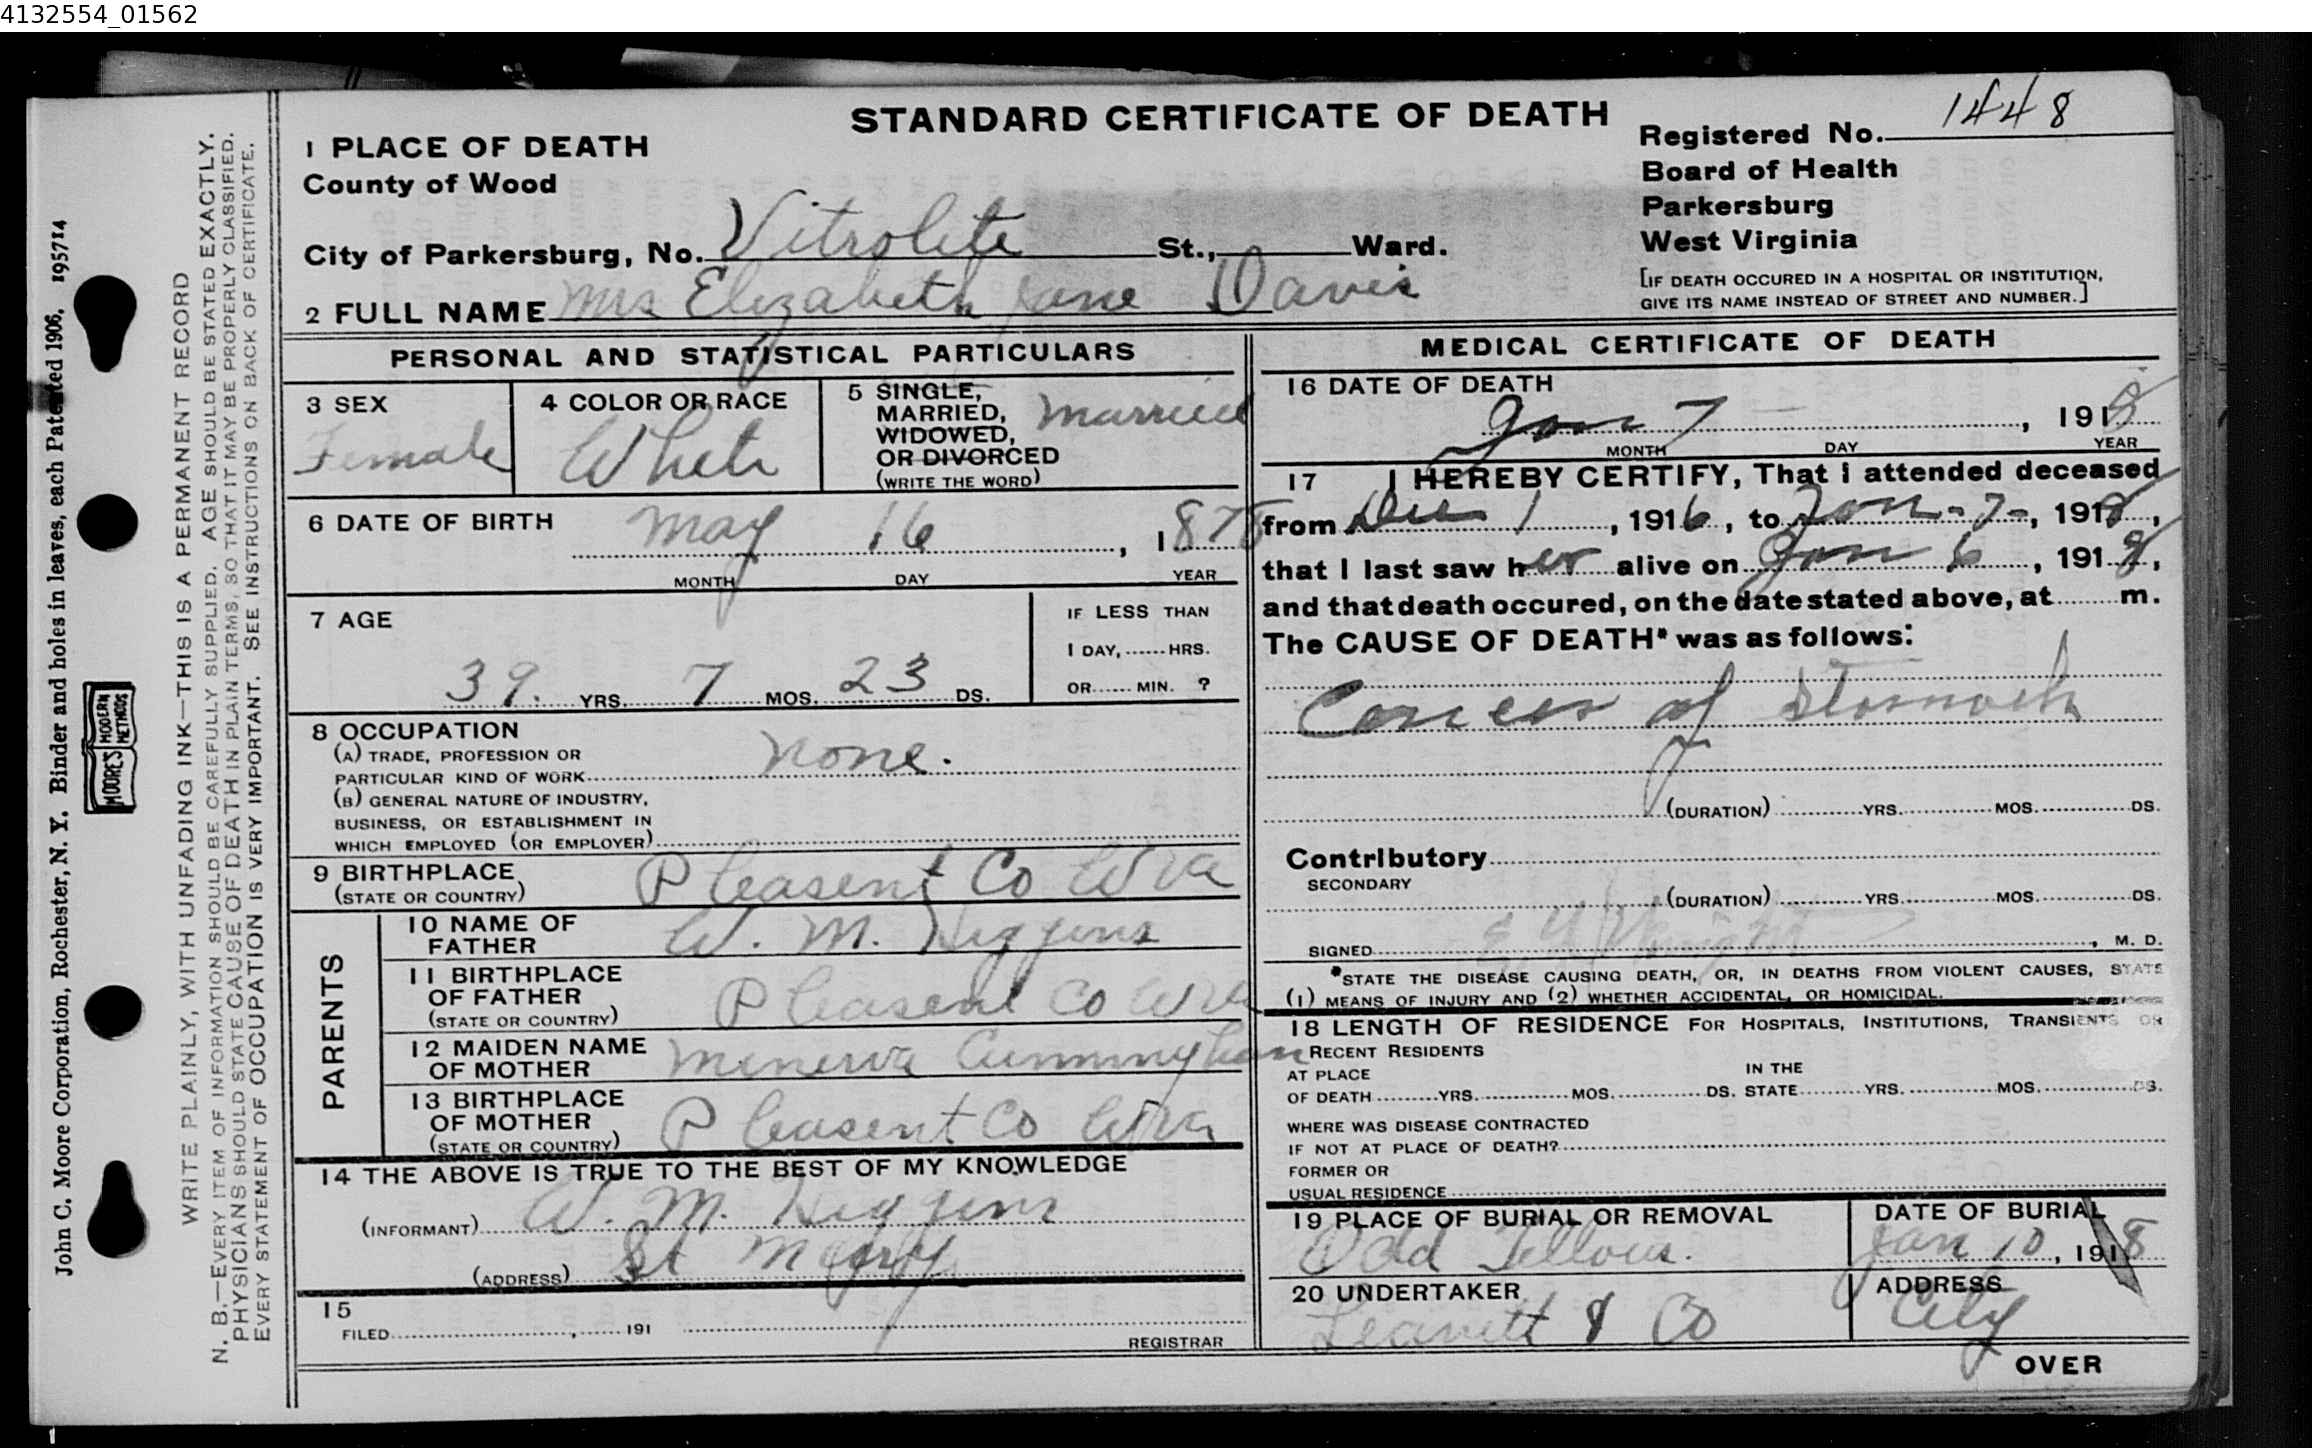 4132554_01562
STANDARD CERTIFICATE OF DEATH
1 PLACE OF DEATH
County of Wood
City of Parkersburg, No. Vitrolite St., Ward.
2 FULL NAME Mrs Elizabeth Jane Davis
Registered No. 1448
Board of Health
Parkersburg
West Virginia
[IF DEATH OCCURED IN A HOSPITAL OR INSTITUTION,
GIVE ITS NAME INSTEAD OF STREET AND NUMBER.]
PERSONAL AND STATISTICAL PARTICULARS
3 SEX
Female
4 COLOR OR RACE
White
5 SINGLE,
MARRIED,
WIDOWED,
OR DIVORCED
(WRITE THE WORD)
Married
6 DATE OF BIRTH
May 16, 1878
MONTH DAY YEAR
7 AGE
39. YRS. 7 MOS. 23 DS.
IF LESS THAN
1 DAY, HRS.
OR MIN. ?
8 OCCUPATION
(A) TRADE, PROFESSION OR
PARTICULAR KIND OF WORK none.
(B) GENERAL NATURE OF INDUSTRY,
BUSINESS, OR ESTABLISHMENT IN
WHICH EMPLOYED (OR EMPLOYER)
9 BIRTHPLACE
(STATE OR COUNTRY) Pleasent Co W Va
PARENTS
10 NAME OF
FATHER W. M. Higgins
11 BIRTHPLACE
OF FATHER
(STATE OR COUNTRY) Pleasent Co W Va
12 MAIDEN NAME
OF MOTHER Minerva Cunningham
13 BIRTHPLACE
OF MOTHER
(STATE OR COUNTRY) Pleasent Co W Va
14 THE ABOVE IS TRUE TO THE BEST OF MY KNOWLEDGE
(INFORMANT) W. M. Higgins
(ADDRESS) St Mary
15
FILED , 191
REGISTRAR
MEDICAL CERTIFICATE OF DEATH
16 DATE OF DEATH
Jan 7 , 1918
MONTH DAY YEAR
17 I HEREBY CERTIFY, That I attended deceased
from Dec 1, 1916, to Jan - 7 -, 1918,
that I last saw her alive on Jan 6, 1918,
and that death occured, on the date stated above, at m.
The CAUSE OF DEATH* was as follows:
Cancer of Stomach
(DURATION) YRS. MOS. DS.
Contributory
SECONDARY
(DURATION) YRS. MOS. DS.
SIGNED , M. D.
*STATE THE DISEASE CAUSING DEATH, OR, IN DEATHS FROM VIOLENT CAUSES, STATE
(1) MEANS OF INJURY AND (2) WHETHER ACCIDENTAL, OR HOMICIDAL.
18 LENGTH OF RESIDENCE FOR HOSPITALS, INSTITUTIONS, TRANSIENTS OR
RECENT RESIDENTS
AT PLACE
OF DEATH YRS. MOS. DS.
IN THE
STATE YRS. MOS. DS.
WHERE WAS DISEASE CONTRACTED
IF NOT AT PLACE OF DEATH?
FORMER OR
USUAL RESIDENCE
19 PLACE OF BURIAL OR REMOVAL
Odd Fellows.
DATE OF BURIAL
Jan 10, 1918
20 UNDERTAKER
Leavitt & Co
ADDRESS
City
OVER
WRITE PLAINLY, WITH UNFADING INK—THIS IS A PERMANENT RECORD
N. B.—EVERY ITEM OF INFORMATION SHOULD BE CAREFULLY SUPPLIED. AGE SHOULD BE STATED EXACTLY.
PHYSICIANS SHOULD STATE CAUSE OF DEATH IN PLAIN TERMS, SO THAT IT MAY BE PROPERLY CLASSIFIED.
EVERY STATEMENT OF OCCUPATION IS VERY IMPORTANT. SEE INSTRUCTIONS ON BACK OF CERTIFICATE.
John C. Moore Corporation, Rochester, N. Y. Binder and holes in leaves, each Patented 1906, 195714
MOORE'S MODERN METHODS